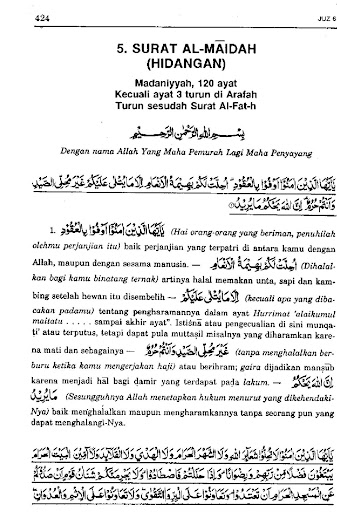 424
JUZ 6
5. SURAT AL-MĀIDAH
(HIDANGAN)
Madaniyyah, 120 ayat
Kecuali ayat 3 turun di Arafah
Turun sesudah Surat Al-Fat-h
بِسْمِ اللهِ الرَّحْمٰنِ الرَّحِيْمِ
Dengan nama Allah Yang Maha Pemurah Lagi Maha Penyayang
يٰٓاَيُّهَا الَّذِيْنَ اٰمَنُوْٓا اَوْفُوْا بِالْعُقُوْدِ اُحِلَّتْ لَكُمْ بَهِيْمَةُ الْاَنْعَامِ اِلَّا مَا يُتْلٰى عَلَيْكُمْ غَيْرَ مُحِلِّى الصَّيْدِ
وَاَنْتُمْ حُرُمٌ اِنَّ اللهَ يَحْكُمُ مَا يُرِيْدُ
1. يٰٓاَيُّهَا الَّذِيْنَ اٰمَنُوْٓا اَوْفُوْا بِالْعُقُوْدِ (Hai orang-orang yang beriman, penuhilah
olehmu perjanjian itu) baik perjanjian yang terpatri di antara kamu dengan
Allah, maupun dengan sesama manusia. — اُحِلَّتْ لَكُمْ بَهِيْمَةُ الْاَنْعَامِ (Dihalal-
kan bagi kamu binatang ternak) artinya halal memakan unta, sapi dan kam-
bing setelah hewan itu disembelih — اِلَّا مَا يُتْلٰى عَلَيْكُمْ (kecuali apa yang diba-
cakan padamu) tentang pengharamannya dalam ayat Hurrimat 'alaikumul
maitatu . . . . . sampai akhir ayat". Istiśnā atau pengecualian di sini munqa-
ti' atau terputus, tetapi dapat pula muttaşil misalnya yang diharamkan kare-
na mati dan sebagainya — غَيْرَ مُحِلِّى الصَّيْدِ وَاَنْتُمْ حُرُمٌ (tanpa menghalalkan ber-
buru ketika kamu mengerjakan haji) atau berihram; gaira dijadikan manşūb
karena menjadi hāl bagi ḍamir yang terdapat pada lakum. — اِنَّ اللهَ يَحْكُمُ
مَا يُرِيْدُ (Sesungguhnya Allah menetapkan hukum menurut yang dikehendaki-
Nya) baik menghalalkan maupun mengharamkannya tanpa seorang pun yang
dapat menghalangi-Nya.
يٰٓاَيُّهَا الَّذِيْنَ اٰمَنُوْا لَا تُحِلُّوْا شَعَآئِرَ اللهِ وَلَا الشَّهْرَ الْحَرَامَ وَلَا الْهَدْيَ وَلَا الْقَلَآئِدَ وَلَآ آٰمِّيْنَ الْبَيْتَ الْحَرَامَ
يَبْتَغُوْنَ فَضْلًا مِّنْ رَّبِّهِمْ وَرِضْوَانًا وَاِذَا حَلَلْتُمْ فَاصْطَادُوْا وَلَا يَجْرِمَنَّكُمْ شَنَاٰنُ قَوْمٍ اَنْ صَدُّوْكُمْ
عَنِ الْمَسْجِدِ الْحَرَامِ اَنْ تَعْتَدُوْا وَتَعَاوَنُوْا عَلَى الْبِرِّ وَالتَّقْوٰى وَلَا تَعَاوَنُوْا عَلَى الْاِثْمِ وَالْعُدْوَانِ